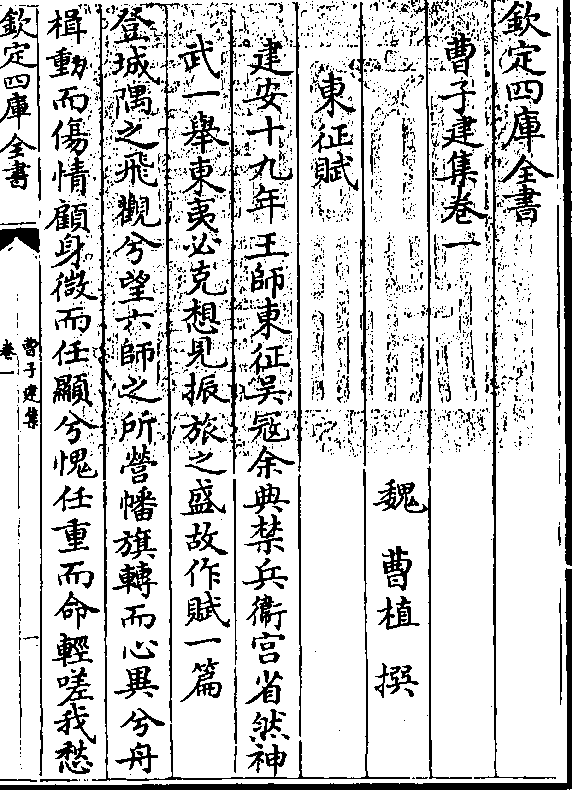 欽定四庫全書
曹子建集卷一
魏　曹植　撰
東征賦
建安十九年王師東征吳冦余典禁兵衞宫省然神
武一舉東夷必克想見振旅之盛故作賦一篇
登城隅之飛觀兮望六師之所營幡旗轉而心異兮舟
楫動而傷情顧身微而任顯兮愧任重而命輕嗟我愁
欽定四庫全書
曹子建集
卷一
一